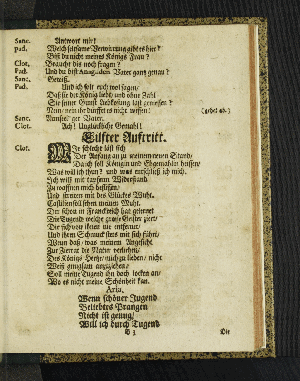 Sanc. Antwort mir!
Pad. Welch seltsame Verwirrung gibt es hier?
Bist du nicht meines Königs Frau?
Clot. Brauchst du noch fragen?
Pad. Und du bist Vater ganz genau?
Sanc. Gewiß.
Pad. Und ich soll euch viel sagen/
Daß für der König liebt/ und ohne Zahl
Sie seiner Gunst Liebkosung läst geniessen?
Nun nein der dürffet es nicht wissen. (gehet ab.)
Sanc. Vater.
Clot. Ach! Unglückliche Gemahl!
Eilfter Aufftritt.
Clot. Wie schlecht läst sich
Der Anfang an zu meinem neuen Stand/
Da ich soll Königin und Ehgemahlin heissen/
Was will ich thun? und was entschließ ich mich.
Ich will mit tapferm Widerstand
Zu waffnen mich befleissen/
Und streiten mit des Glückes Wuth.
Castilien soll sehen meinen Muth.
Der schon in Franckreich hat gelernet
Die Tugend welche grosse Geister ziert/
Die sich von ihnen nie entfernt/
Und ihren Schmuck stets mit sich führt/
Wenn daß/ was meinem Angesicht
Zur Zierrat die Natur verliehn/
Des Königs Hertz/ mich zu lieben/ nicht
Weiß gnugsam anzuziehen/
Soll meine Tugend ihn doch locken an/
Wo es nicht meine Schönheit kan.
Aria.
Wenn schöner Jugend
Beliebtes Prangen
Nicht ist genug/
Will ich durch Tugend
B 3 Die